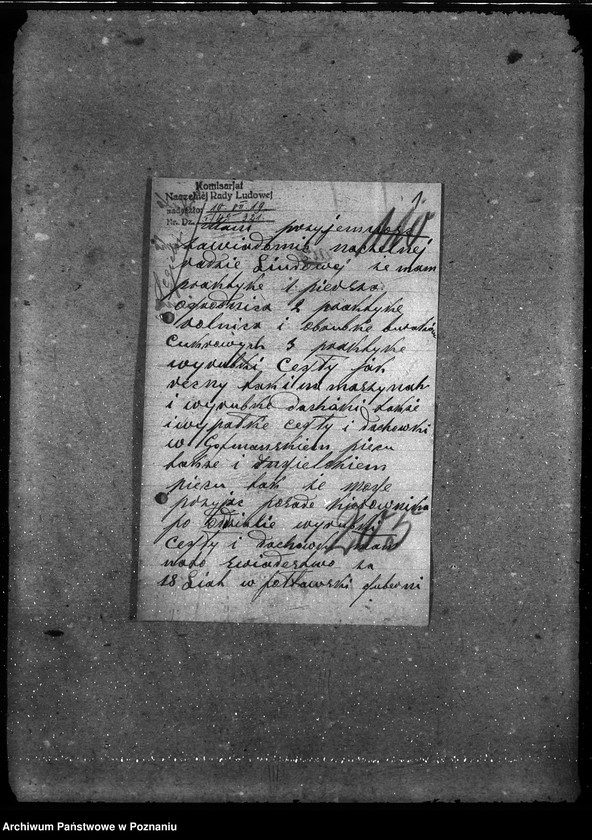 Komisarjat
Naczelnej Rady Ludowej
nadeszło: 10 VII 19
Nr. Dz.
1
Mam przyjemność
zawiadomić naczelnej
radzie Lindowej że mam
praktykę 1 piersza
ogrodnica 2 praktykę
rolnica i obrubke burakow
Cukrowych 3 praktykę
wyrubki Cegły jak
ręcny tak i m maszynah
i wyrubke dachuki takze
i wypalke cegły i dachowki
w Gofmanskiem piecu
takze i Angielskiem
piecu tak że moge
pozyjąc posade kierownika
po Oddziale wyrubki
Cegły i dachowki mam
na to swiadestwo za
18 Liat w połtawski guberni
Archiwum Państwowe w Poznaniu